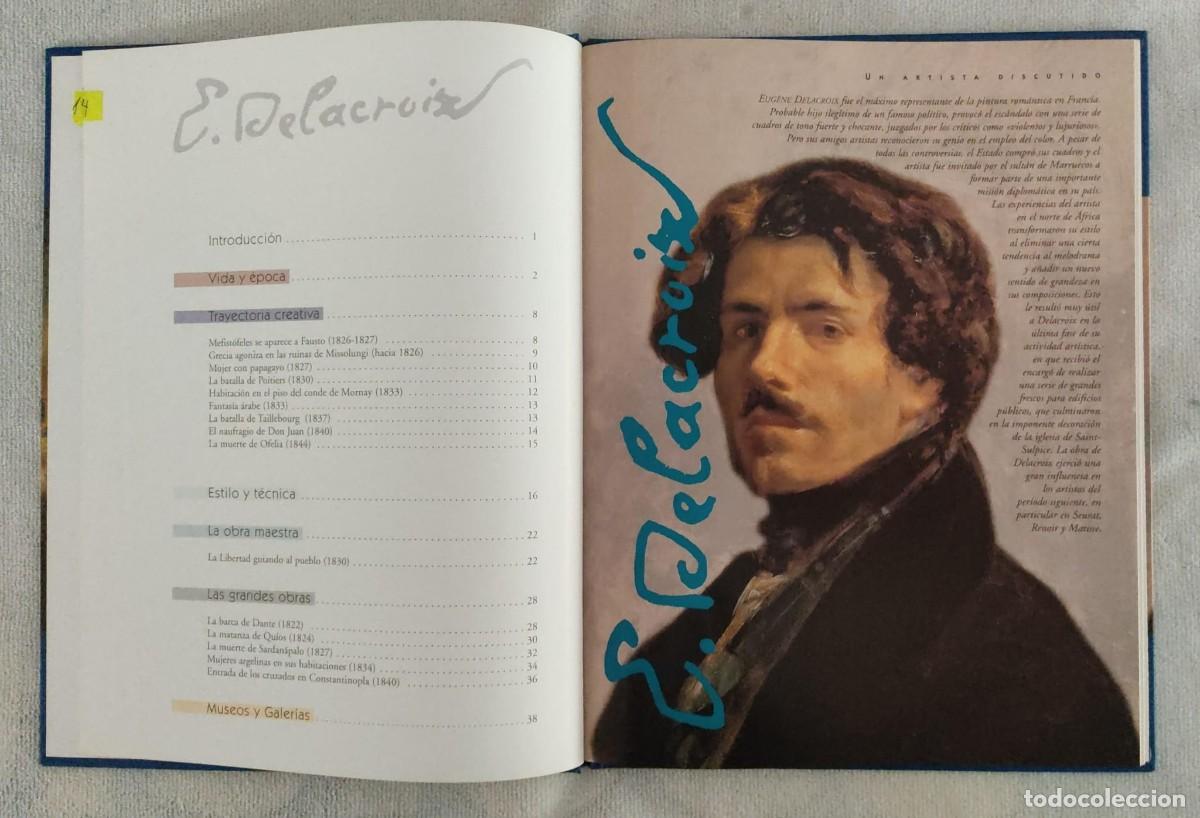 14
E. Delacroix
Introducción 1
Vida y época 2
Trayectoria creativa 8
Mefistófeles se aparece a Fausto (1826-1827) 8
Grecia agoniza en las ruinas de Missolungi (hacia 1826) 9
Mujer con papagayo (1827) 10
La batalla de Poitiers (1830) 11
Habitación en el piso del conde de Mornay (1833) 12
Fantasía árabe (1833) 13
La batalla de Taillebourg (1837) 13
El naufragio de Don Juan (1840) 14
La muerte de Ofelia (1844) 15
Estilo y técnica 16
La obra maestra 22
La Libertad guiando al pueblo (1830) 22
Las grandes obras 28
La barca de Dante (1822) 28
La matanza de Quíos (1824) 30
La muerte de Sardanápalo (1827) 32
Mujeres argelinas en sus habitaciones (1834) 34
Entrada de los cruzados en Constantinopla (1840) 36
Museos y Galerías 38
Un artista discutido
Eugène Delacroix fue el máximo representante de la pintura romántica en Francia.
Probable hijo ilegítimo de un famoso político, provocó el escándalo con una serie de
cuadros de tono fuerte y chocante, juzgados por los críticos como «violentos y lujuriosos».
Pero sus amigos artistas reconocieron su genio en el empleo del color. A pesar de
todas las controversias, el Estado compró sus cuadros y el
artista fue invitado por el sultán de Marruecos a
formar parte de una importante
misión diplomática en su país.
Las experiencias del artista
en el norte de África
transformaron su estilo
al eliminar una cierta
tendencia al melodrama
y añadir un nuevo
sentido de grandeza en
sus composiciones. Esto
le resultó muy útil
a Delacroix en lo
última fase de su
actividad artística,
en que recibió el
encargo de realizar
una serie de grandes
frescos para edificios
públicos, que culminaron
en la imponente decoración
de la iglesia de Saint-
Sulpice. La obra de
Delacroix ejerció una
gran influencia en
los artistas del
período siguiente, en
particular en Seurat,
Renoir y Matisse.
E. Delacroix
todocoleccion